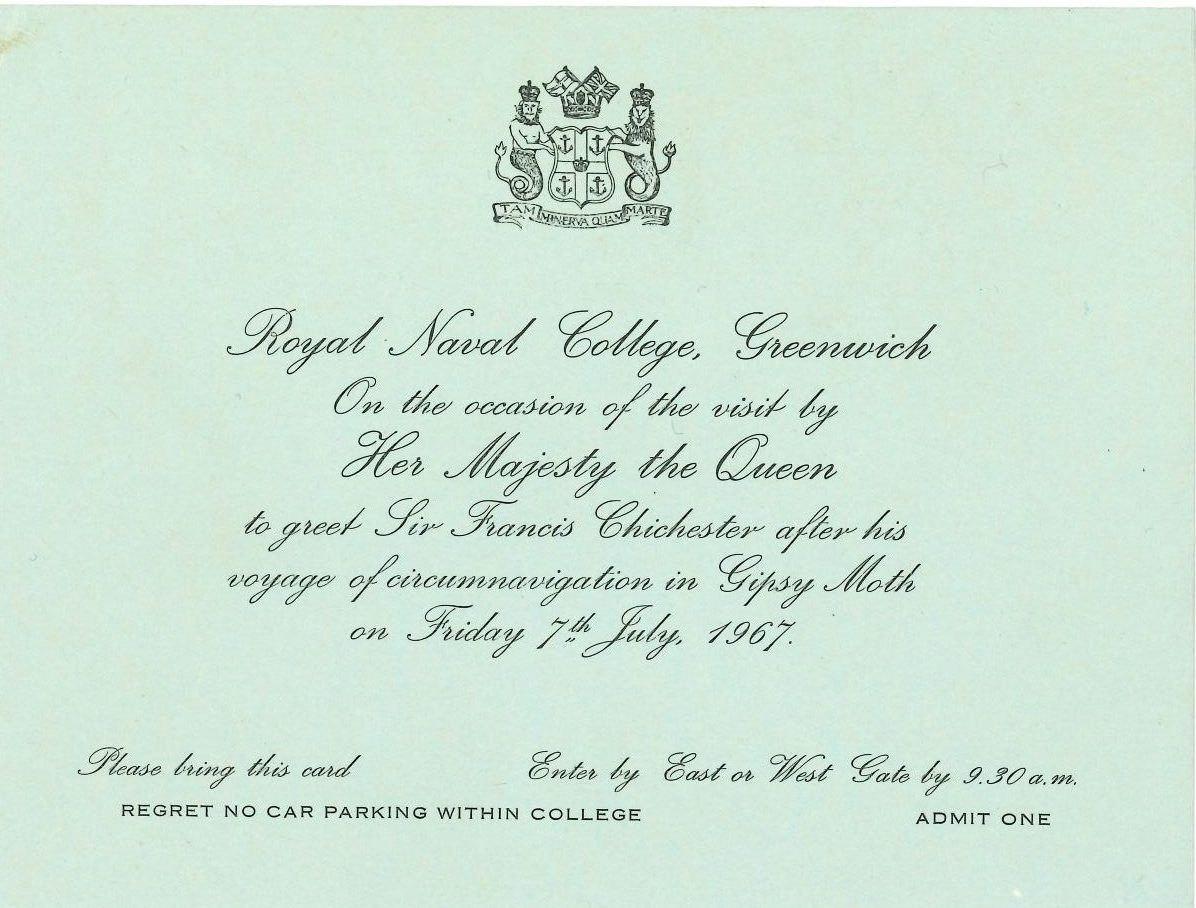 TAM MINERVA QUAM MARTE
Royal Naval College, Greenwich
On the occasion of the visit by
Her Majesty the Queen
to greet Sir Francis Chichester after his
voyage of circumnavigation in Gipsy Moth
on Friday 7th July, 1967.
Please bring this card
Enter by East or West Gate by 9.30 a.m.
REGRET NO CAR PARKING WITHIN COLLEGE
ADMIT ONE